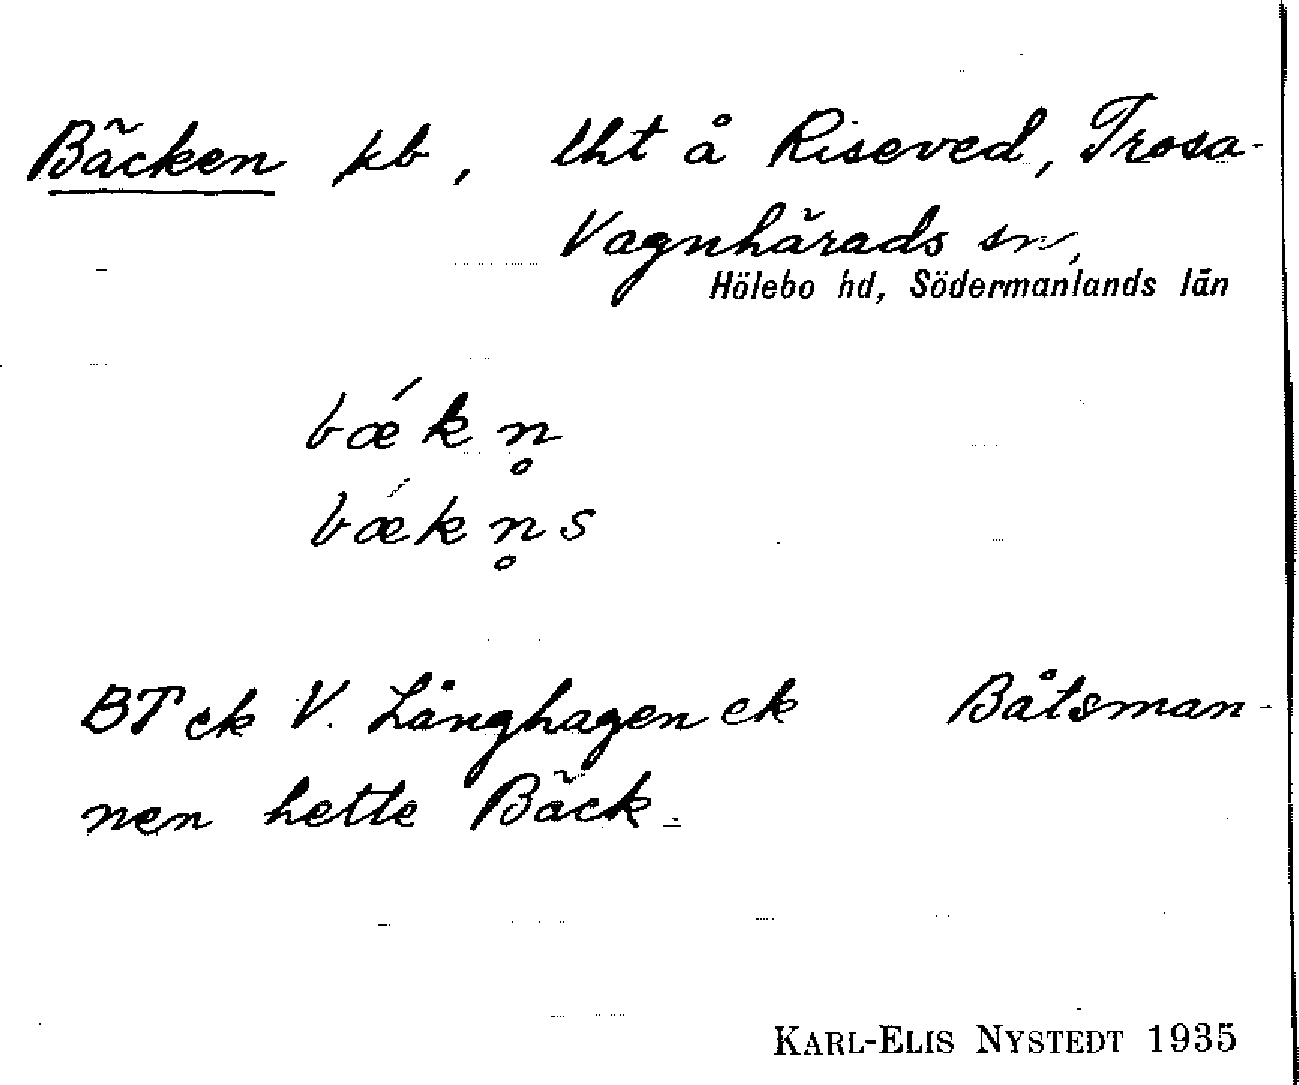 Bäcken kb, lht å Riseved, Trosa-
Vagnhärads sn,
Hölebo hd, Södermanlands län
bǽkn̥
bǽkn̥s
BT ck V. Långhagen ck Båtsman-
nen hette Bäck.
KARL-ELIS NYSTEDT 1935